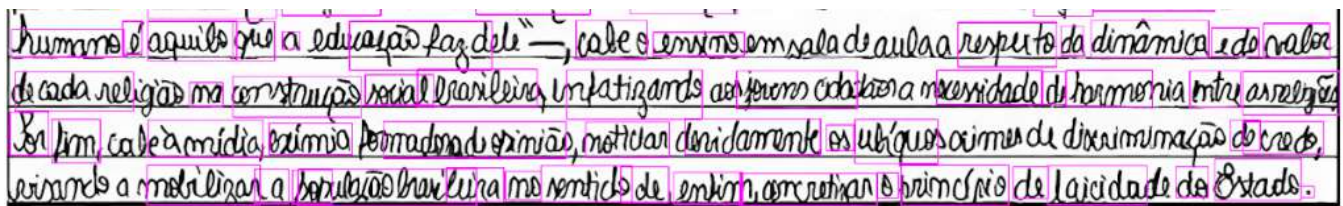 humano é aquilo que a educação faz dele" —, cabe o ensino em sala de aula a respeito da dinâmica e do valor
de cada religião na construção social brasileira, enfatizando aos jovens cidadãos a necessidade de harmonia entre as religiões
Por fim, cabe à mídia, exímia formadora de opinião, noticiar devidamente os ubíquos crimes de discriminação do credo,
visando a mobilizar a população brasileira no sentido de, enfim, concretizar o princípio de laicidade do Estado.